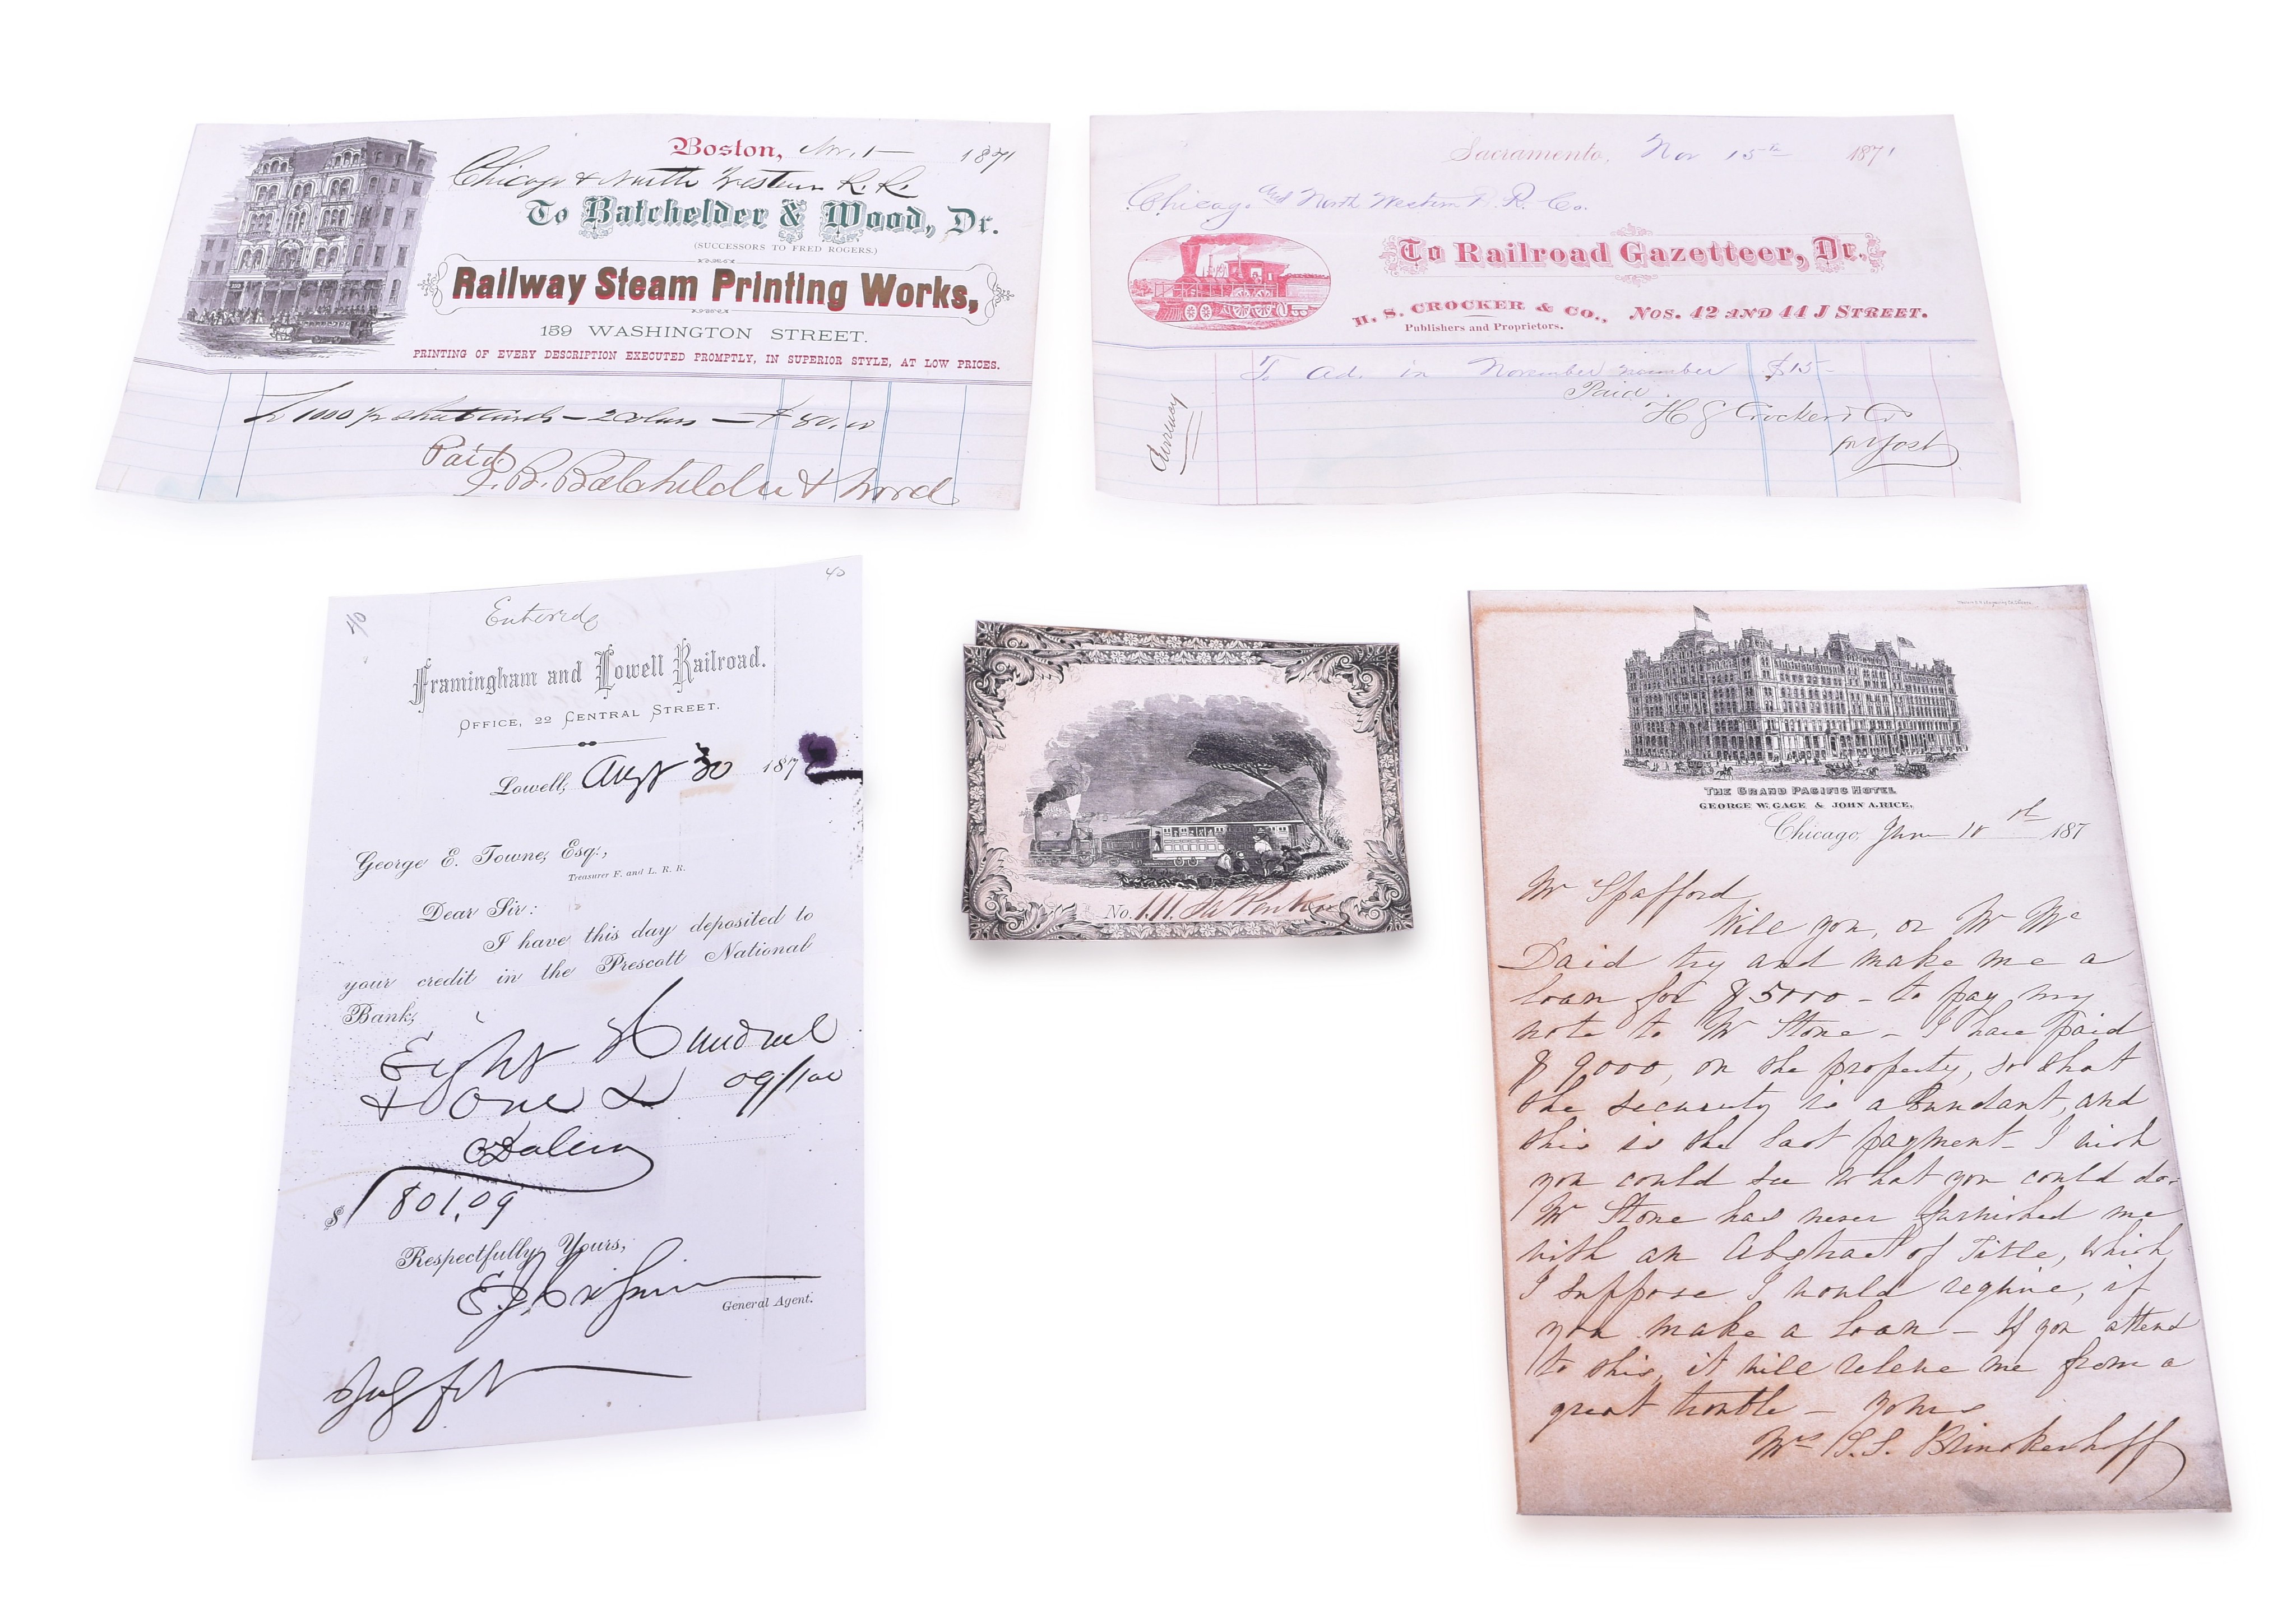 Boston, Nov. 1 1871
Chicago & North Western R. R.
To Batchelder & Wood, Dr.
(SUCCESSORS TO FRED ROGERS.)
Railway Steam Printing Works,
159 WASHINGTON STREET.
PRINTING OF EVERY DESCRIPTION EXECUTED PROMPTLY, IN SUPERIOR STYLE, AT LOW PRICES.
1000 sheet cards — 2 colors — $80.00
Paid
J. B. Batchelder & Wood
Sacramento, Nov 15th 1871
Chicago and North Western R. R. Co.
To Railroad Gazetteer, Dr.
H. S. CROCKER & CO., NOS. 42 AND 44 J STREET.
Publishers and Proprietors.
To ad. in November number $15-
Paid
H S Crocker & Co
pr Yost
Currency
40
40
Entered
Framingham and Lowell Railroad.
OFFICE, 22 CENTRAL STREET.
Lowell, Augt 30 187
George E. Towne, Esq.,
Treasurer F. and L. R. R.
Dear Sir:
I have this day deposited to
your credit in the Prescott National
Bank,
Eight Hundred
& One & 09/100
Dollars
$ 801.09
Respectfully Yours,
General Agent.
No.
THE GRAND PACIFIC HOTEL
GEORGE W. GAGE & JOHN A. RICE.
Chicago, 187
Mr Spafford
Will you, or Mr Mc
Daid try and make me a
loan for $5000 - to pay my
note to Mr Stone - I have paid
$9000, on the property, so that
the security is abundant, and
this is the last payment - I wish
you could see what you could do.
Mr Stone has never furnished me
with an Abstract of Title, which
I suppose I would require, if
you make a loan - If you attend
to this, it will releive me from a
great trouble - Yours
Mrs S.S. Brinckerhoff